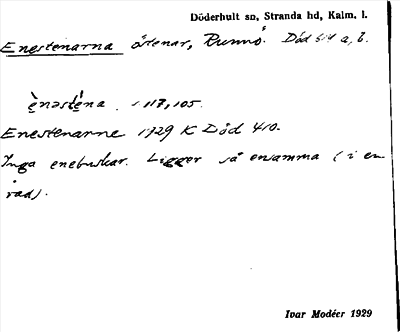 Döderhult sn, Stranda hd, Kalm. l.
Enestenarna östenar, Runnö. Död 514 a, b.
ènəsténa 117, 105.
Enestenarne 1929 K Död 410.
Inga enebuskar. Ligger så ensamma (i en
rad).
Ivar Modéer 1929